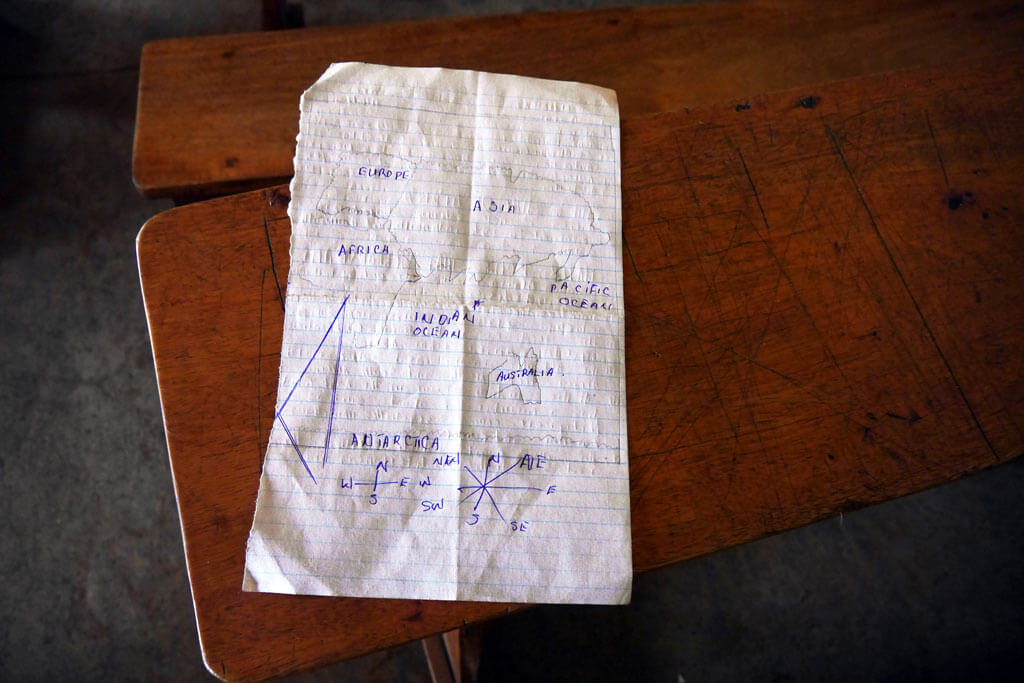 EUROPE
ASIA
AFRICA
PACIFIC
OCEAN
INDIAN
OCEAN
AUSTRALIA.
ANTARCTICA
N
W E
S
N
W E
SW
S SE